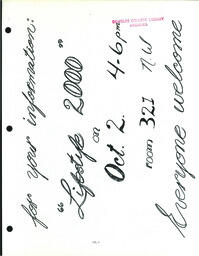 for your information:
"Lifestyle 2000"
on
Oct. 2. 4-6pm
room 321 NW
Everyone welcome